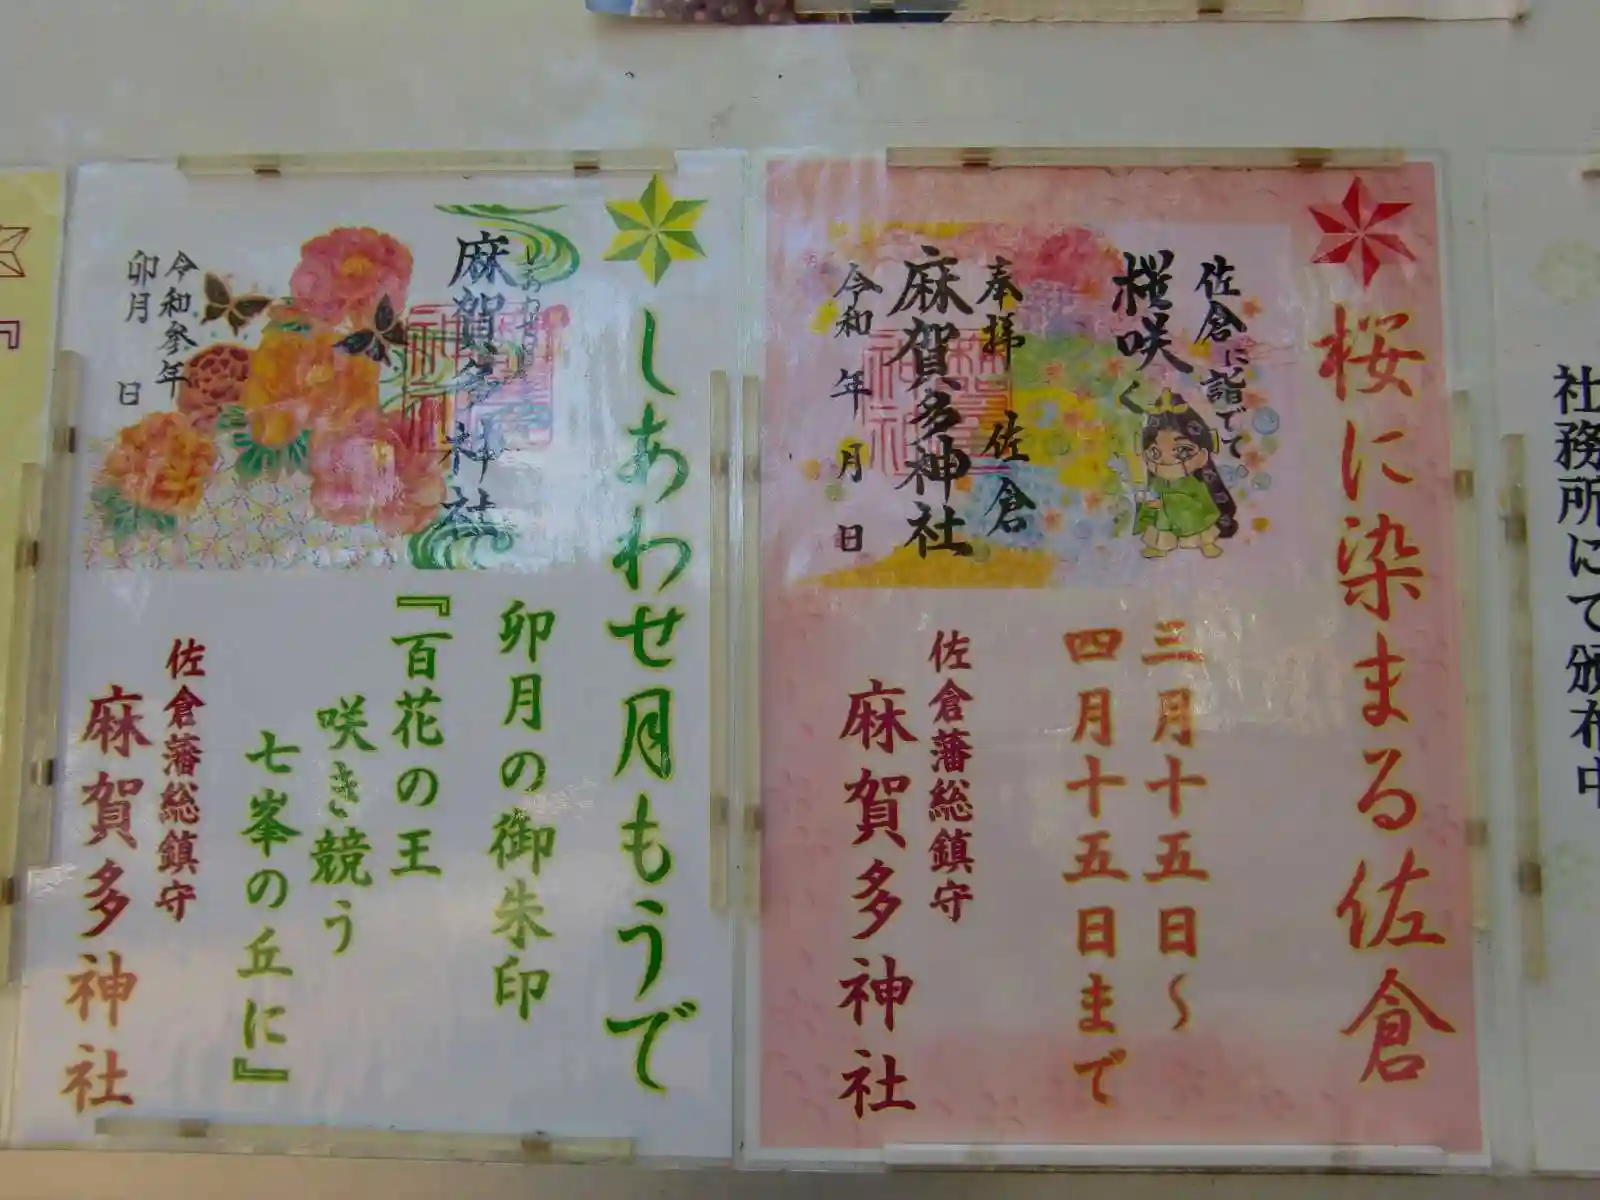 社務所にて頒布中
桜に染まる佐倉
佐倉に詣でて
桜咲く
奉拝 佐倉
麻賀多神社
令和 年 月 日
三月十五日〜
四月十五日まで
佐倉藩総鎮守
麻賀多神社
しあわせ月もうで
麻賀多神社
令和参年
卯月 日
卯月の御朱印
『百花の王
咲き競う
七峯の丘に』
佐倉藩総鎮守
麻賀多神社
『